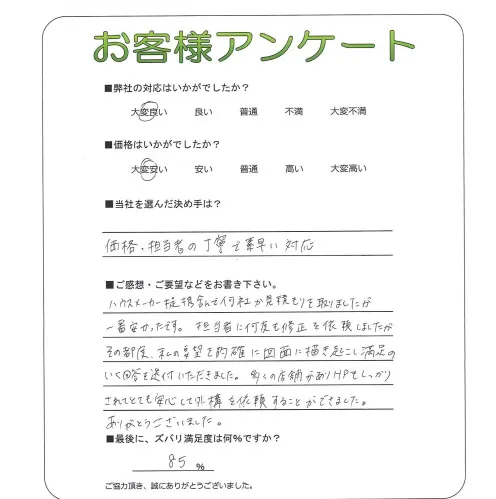 お客様アンケート
■弊社の対応はいかがでしたか？
大変良い 良い 普通 不満 大変不満
■価格はいかがでしたか？
大変安い 安い 普通 高い 大変高い
■当社を選んだ決め手は？
価格、担当者の丁寧で素早い対応
■ご感想・ご要望などをお書き下さい。
ハウスメーカー提携含んで何社か見積もりを取りましたが
一番安かったです。担当者に何度も修正を依頼しましたが
その都度、私の要望を的確に図面に描き起こし満足の
いく回答を送付いただきました。多くの店舗がありHPもしっかり
されてとても安心して外構を依頼することができました。
ありがとうございました。
■最後に、ズバリ満足度は何%ですか？
85 %
ご協力頂き、誠にありがとうございました。